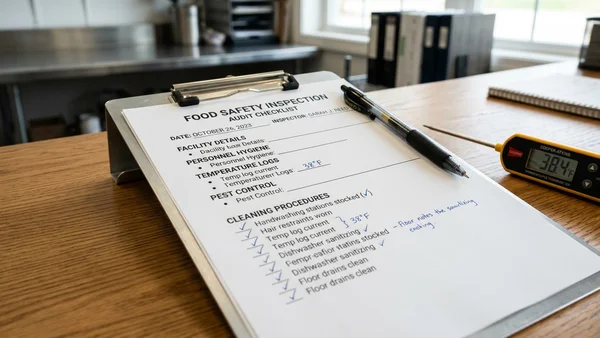 FOOD SAFETY INSPECTION
AUDIT CHECKLIST
DATE: OCTOBER 26, 2023 INSPECTOR: SARAH J.
FACILITY DETAILS
• Dacility luxe Details:
PERSONNEL HYGIENE
• Personnel Hygiene:
TEMPERATURE LOGS
• Temp log current 38°F
• Temperaturerr Logs:
PEST CONTROL
• Pest Control:
CLEANING PROCEDURES
Handwashing stations stocked (✓)
Hair restraints worn
Temp log current } 38°F
Temp log current
Dishwasher sanitizing ✓
stocked - Floor notes the sanitizing
Dishwasher sanitizing ✓
Floor drains clean
Floor drains clean
38.4°F